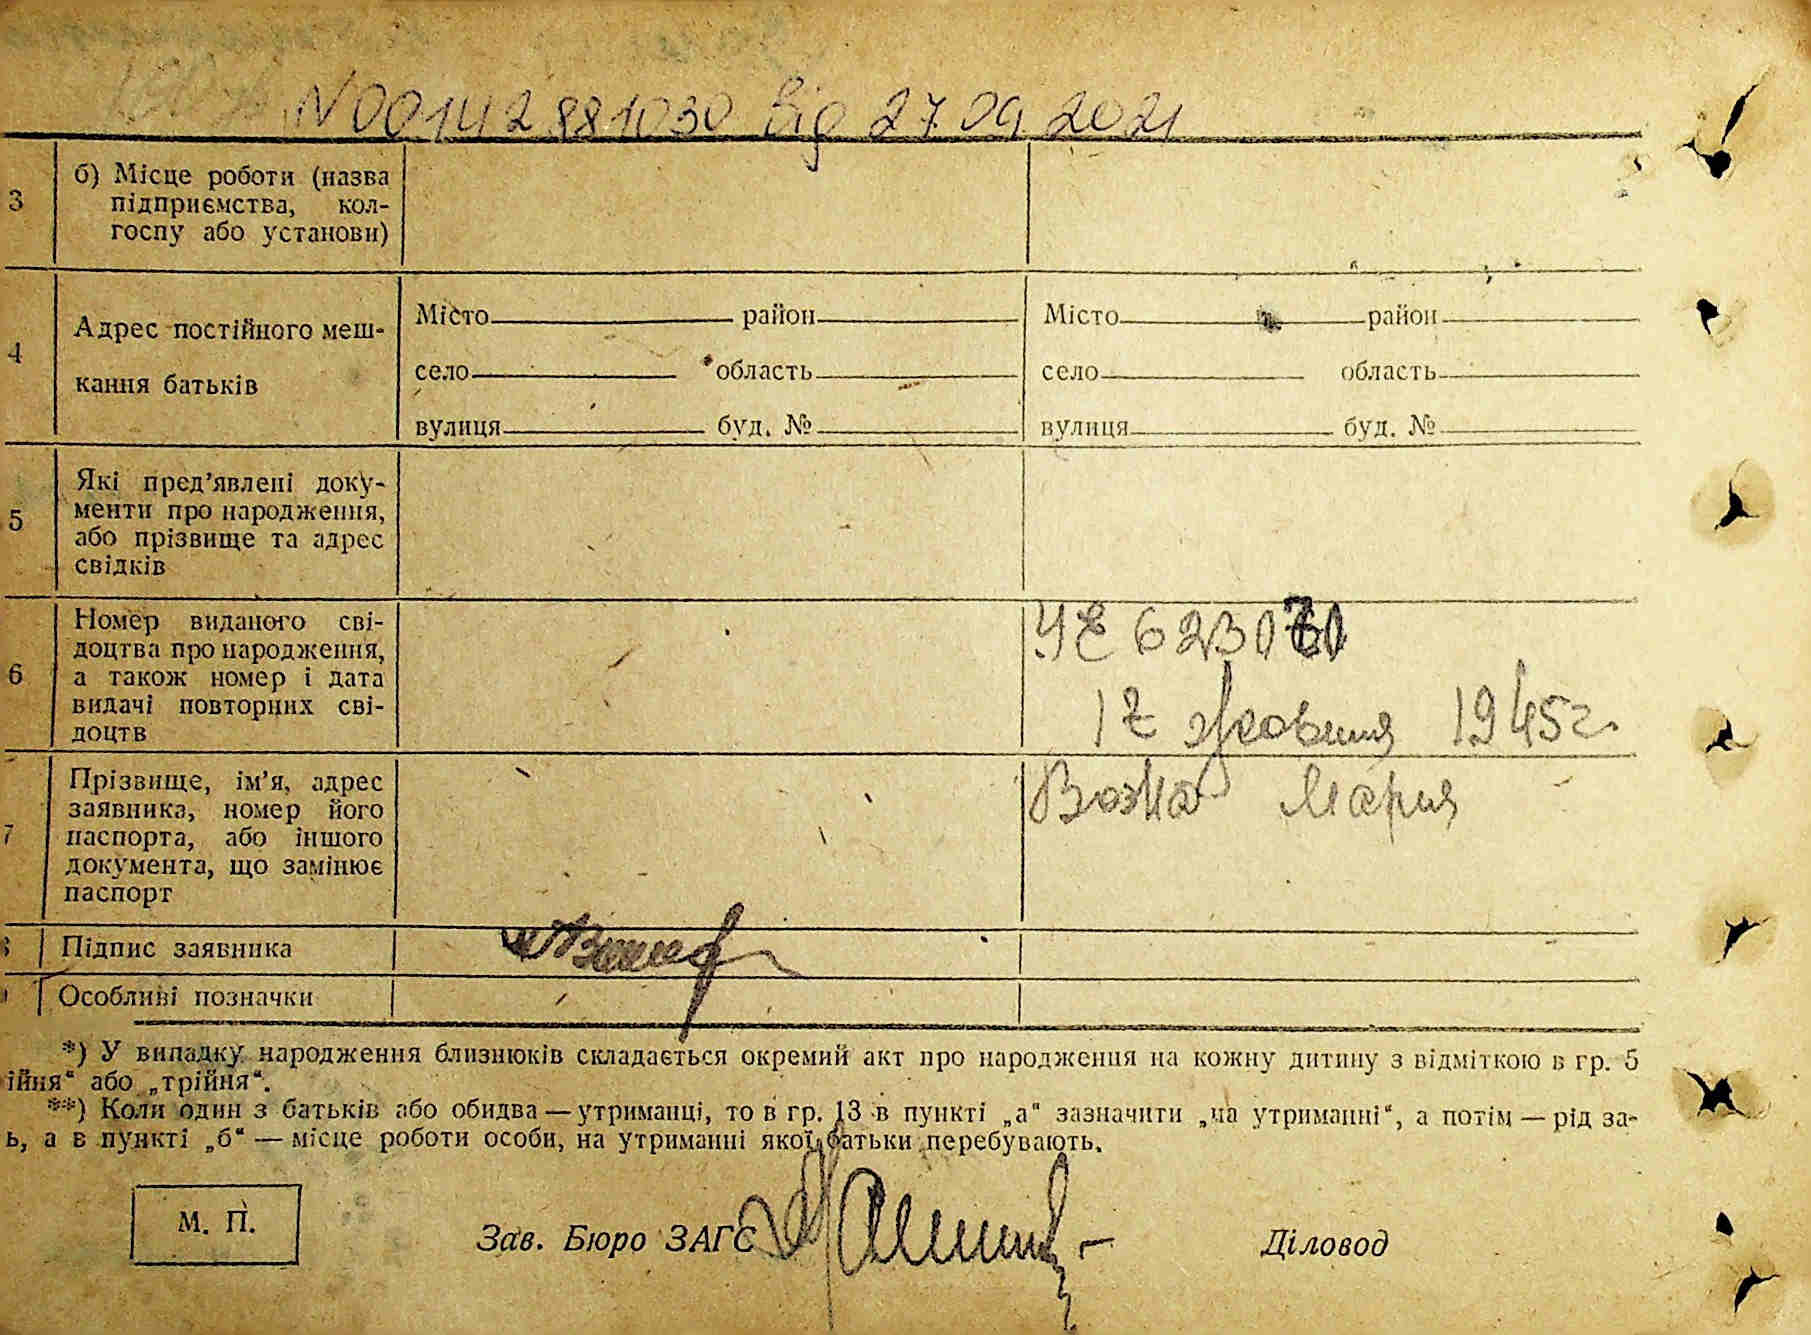 N 00142881030 від 27 09 2021
3
б) Місце роботи (назва
підприємства, кол-
госпу або установи)
4
Адрес постійного меш-
кання батьків
Місто район
село область
вулиця буд. №
Місто район
село область
вулиця буд. №
5
Які пред’явлені доку-
менти про народження,
або прізвище та адрес
свідків
6
Номер виданого сві-
доцтва про народження,
а також номер і дата
видачі повторних сві-
доцтв
17 жовтня 1945г.
7
Прізвище, ім’я, адрес
заявника, номер його
паспорта, або іншого
документа, що замінює
паспорт
Мария
Підпис заявника
Особливі позначки
*) У випадку народження близнюків складається окремий акт про народження на кожну дитину з відміткою в гр. 5
ійня“ або „трійня“.
**) Коли один з батьків або обидва — утриманці, то в гр. 13 в пункті „а“ зазначити „на утриманні“, а потім — рід за-
ь, а в пункті „б“ — місце роботи особи, на утриманні якої батьки перебувають.
М. П.
Зав. Бюро ЗАГС
Діловод